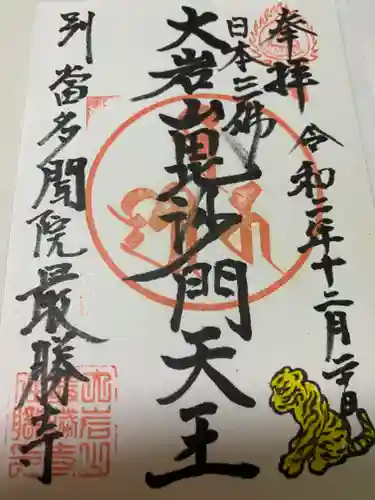 奉拝
令和二年十二月二十日
日本三躰
大岩山毘沙門天王
別當多聞院最勝寺